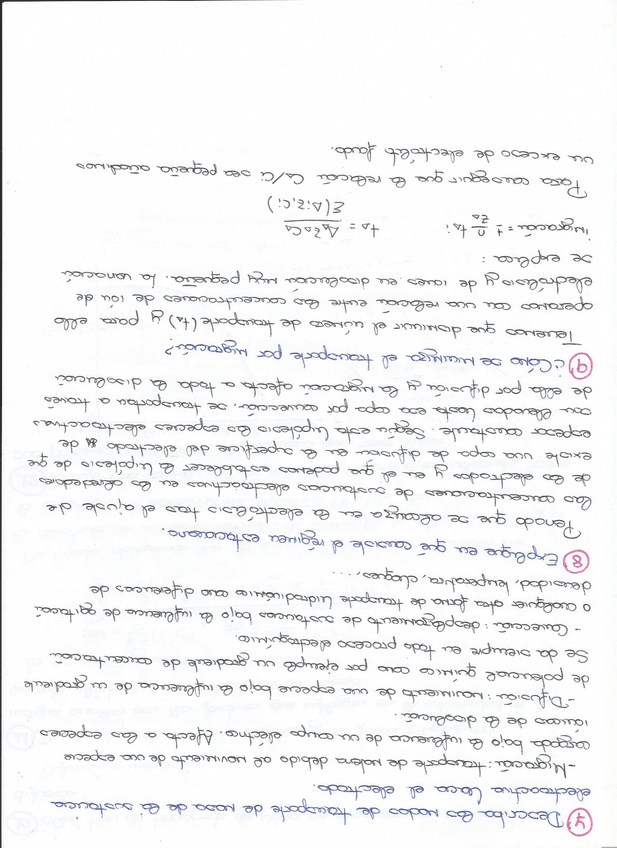 7) Describa los modos de transporte de masa de la sustancia
electroactiva hacia el electrodo.
-Migración: transporte de materia debido al movimiento de una especie
cargada bajo la influencia de un campo eléctrico. Afecta a las especies
iónicas de la disolución.
-Difusión: movimiento de una especie bajo la influencia de un gradiente
de potencial químico como por ejemplo un gradiente de concentración.
Se da siempre en todo proceso electroquímico.
- Convección: desplazamiento de sustancias bajo la influencia de agitación
o cualquier otra forma de transporte hidrodinámico como diferencias de
densidad, temperatura, choques, ...
8) Explique en qué consiste el régimen estacionario.
Periodo que se alcanza en la electrólisis tras el ajuste de
las concentraciones de sustancias electroactivas en los alrededores
de los electrodos y en el que podemos establecer la hipótesis de que
existe una capa de difusión en la superficie del electrodo de
espesor constante. Según esta hipótesis las especies electroactivas
son llevadas hasta esa capa por convección, se transportan a través
de ella por difusión y la migración afecta a toda la disolución
9) ¿Cómo se minimiza el transporte por migración?
Tenemos que disminuir el número de transporte (tₐ) y para ello
operamos con una relación entre las concentraciones de ión de
electrólisis y de iones en disolución muy pequeña. La
se explica:
migración = ± n/zₐ tₐi tₐ = λₐzₐCₐ / Σ(λᵢzᵢCᵢ)
Para conseguir que la relación Cₐ/Cᵢ sea pequeña añadimos
un exceso de electrolito fondo.